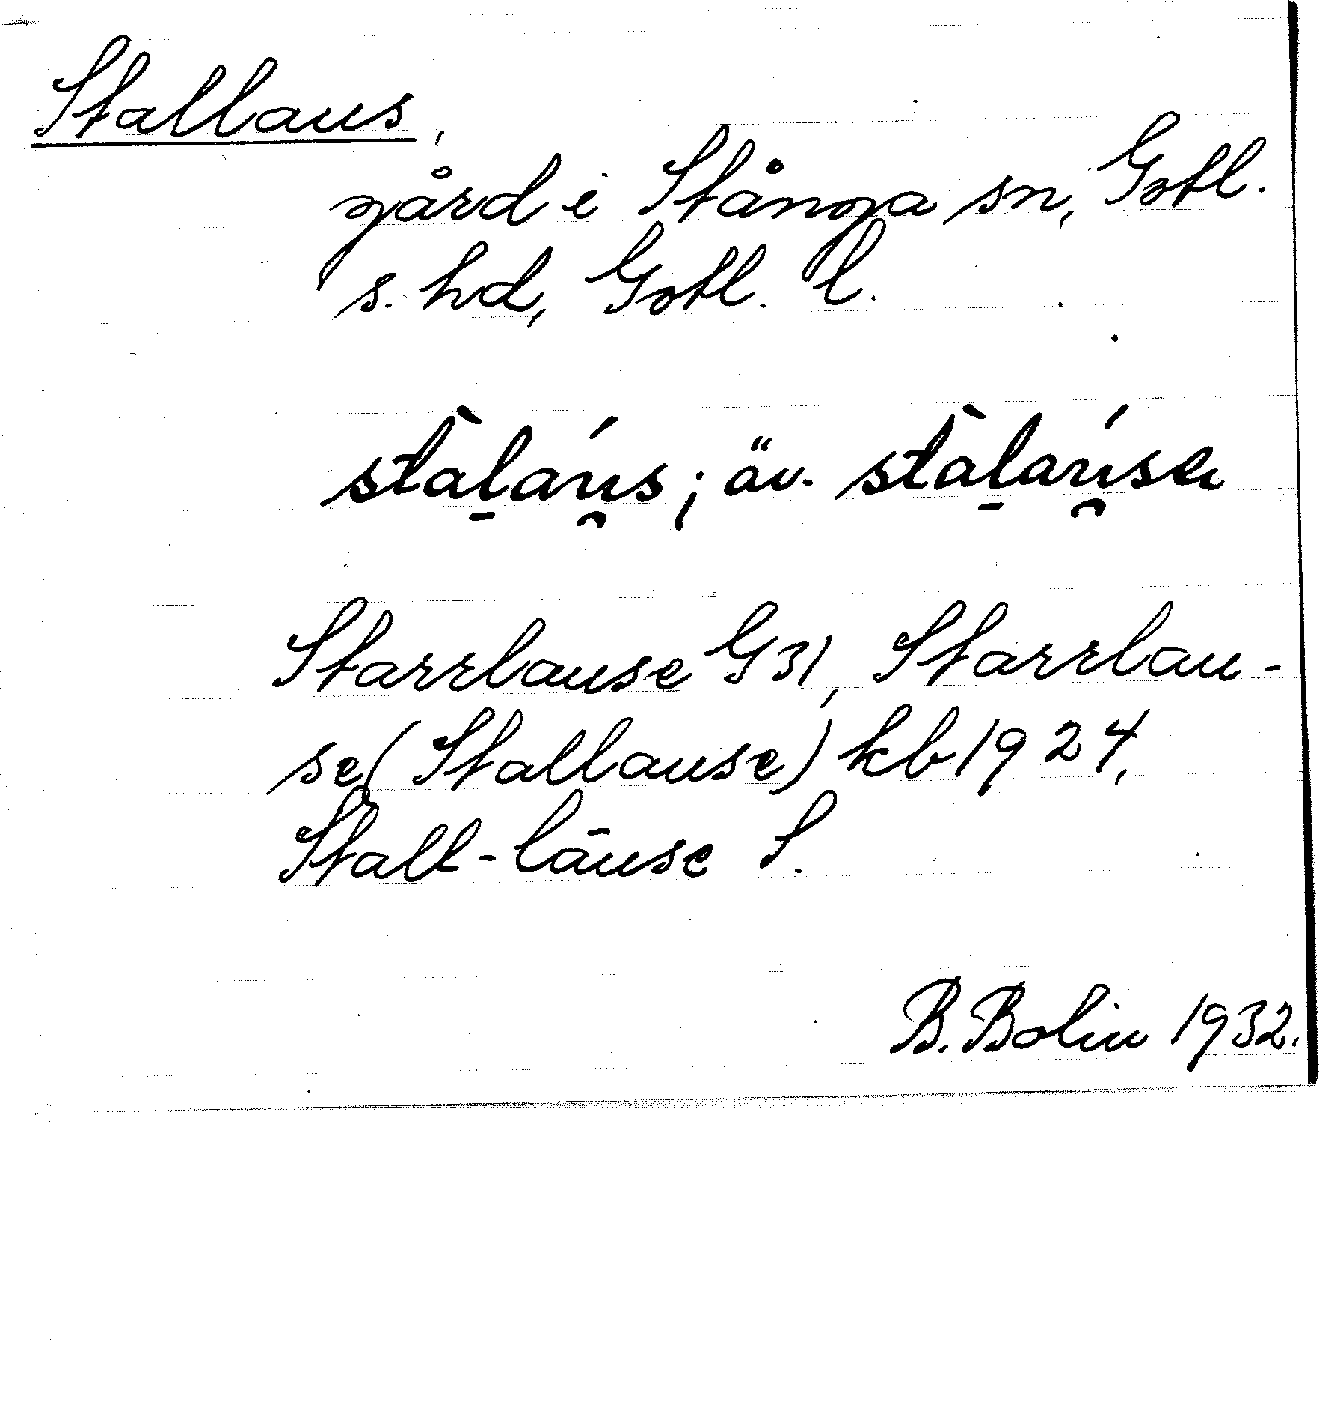 Stallaus,
gård i Stånga sn, Gotl.
s. hd, Gotl. l.
stàl̠áu̯s; äv. stàl̠áu̯sa
Starrlause G31, Starrlau-
se (Stallause) kb 1924,
Stall-läuse S.
B. Bolin 1932.